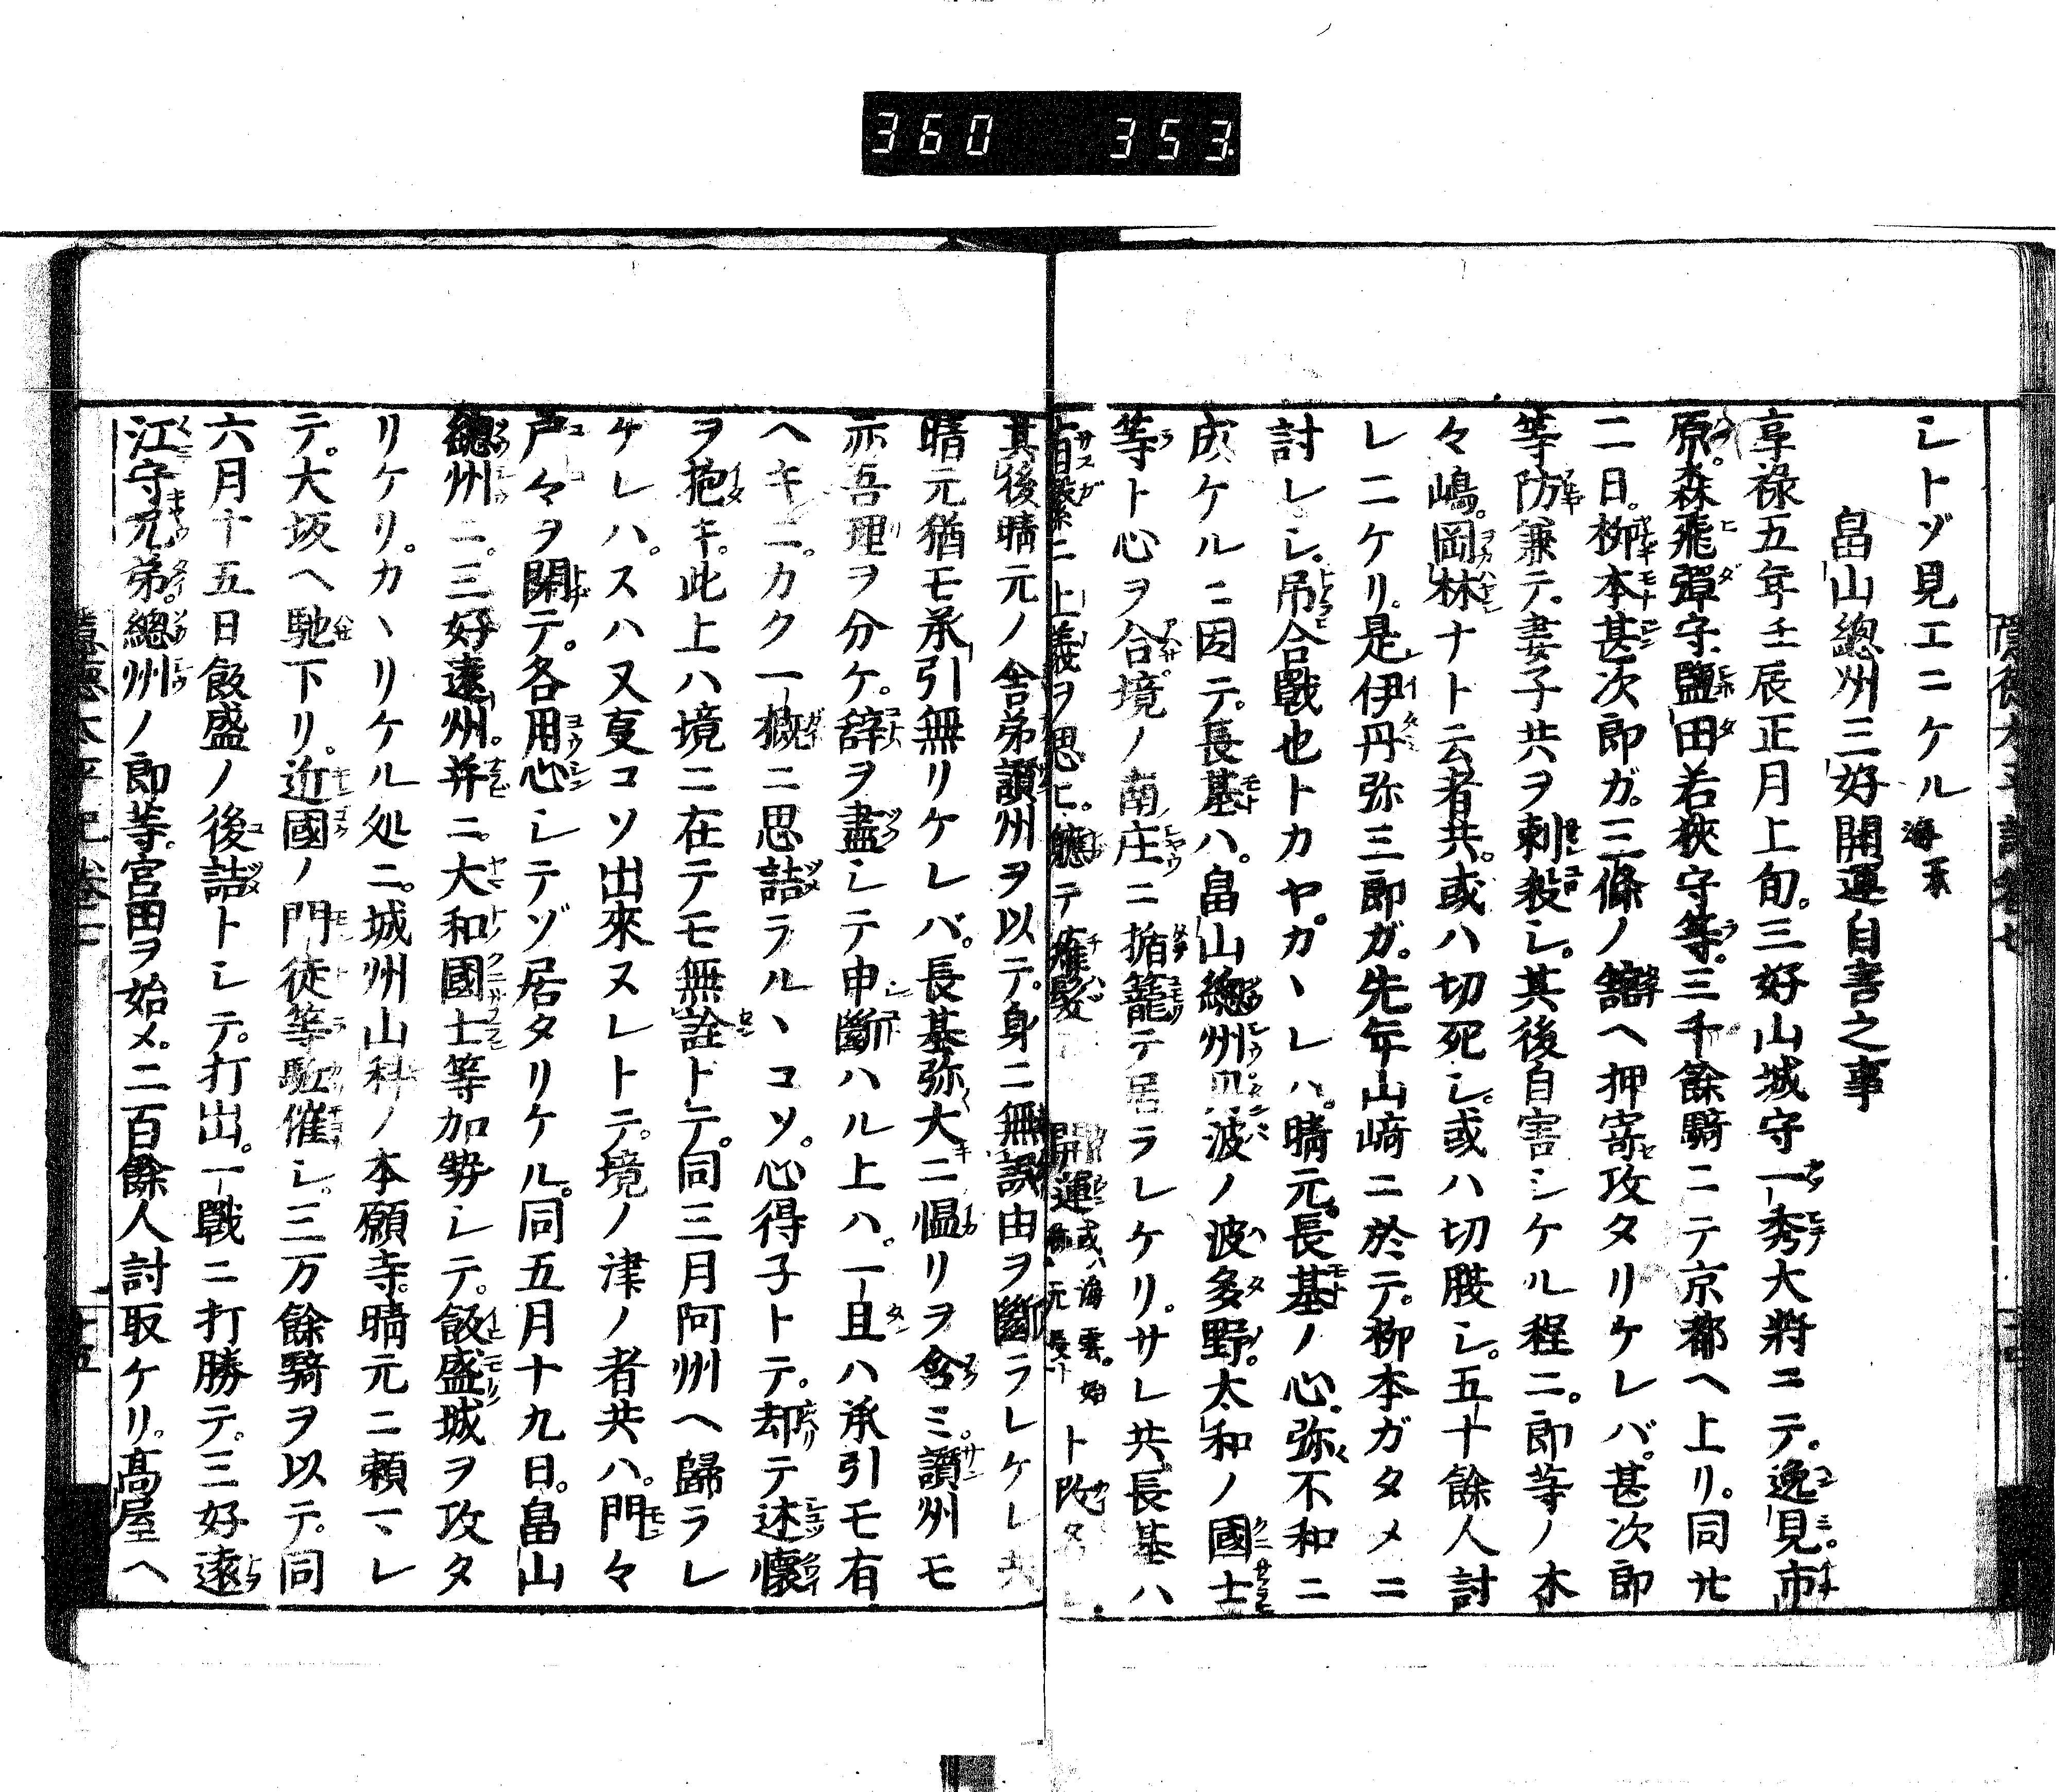 360 353
シトゾ見エニケル
畠山總州三好開運自害之事
享祿五年壬辰正月上旬。三好山城守一秀大將ニテ。逸見。市
原。森飛彈守鹽田若狹守等。三千餘騎ニテ京都ヘ上リ。同廿
二日。柳本甚次郎ガ。三條ノ舘ヘ押寄攻タリケレバ。甚次郎
等防兼テ。妻子共ヲ刺殺シ。其後自害シケル程ニ。郎等ノ木
々嶋。岡林ナト云者共。或ハ切死シ。或ハ切腹シ。五十餘人討
レニケリ。是伊丹弥三郎ガ。先年山﨑ニ於テ。柳本ガタメニ
討レシ。吊合戰也トカヤ。カヽレハ。晴元。長基ノ心。弥不和ニ
成ケルニ因テ。長基ハ。畠山總州丹波ノ波多野。太和ノ國士
等ト心ヲ合。境ノ南庄ニ楯籠テ居ラレケリ。サレ共長基ハ
ニ上義ヲ思ヒ。軈テ薙髮 開運或ハ海雲。始ト改
其後晴元ノ舎弟讃州ヲ以テ。身ニ無誤由ヲ斷ラレケレ共
晴元猶モ承引無リケレバ。長基弥大ニ慍リヲ含ミ。讃州モ
亦吾理ヲ分ケ。辞ヲ盡シテ申斷ハル上ハ。一且ハ承引モ有
ヘキニ。カク一概ニ思詰ラルヽコソ。心得子トテ。却テ述懷
ヲ抱キ。此上ハ境ニ在テモ無詮トテ。同三月阿州ヘ歸ラレ
ケレハ。スハ又夏コソ出來ヌレトテ。境ノ津ノ者共ハ。門々
戸々ヲ閇テ。各用心シテゾ居タリケル。同五月十九日。畠山
總州ニ。三好遠州。并ニ。大和國士等加勢シテ。飯盛城ヲ攻タ
リケリ。カヽリケル処ニ。城州山科ノ本願寺。晴元ニ頼マレ
テ。大坂ヘ馳下リ。近國ノ門徒等駈催シ。三万餘騎ヲ以テ。同
六月十五日飯盛ノ後詰トシテ。打出。一戰ニ打勝テ。三好遠
江守兄弟。總州ノ郎等。宮田ヲ始メ。二百餘人討取ケリ。髙屋ヘ